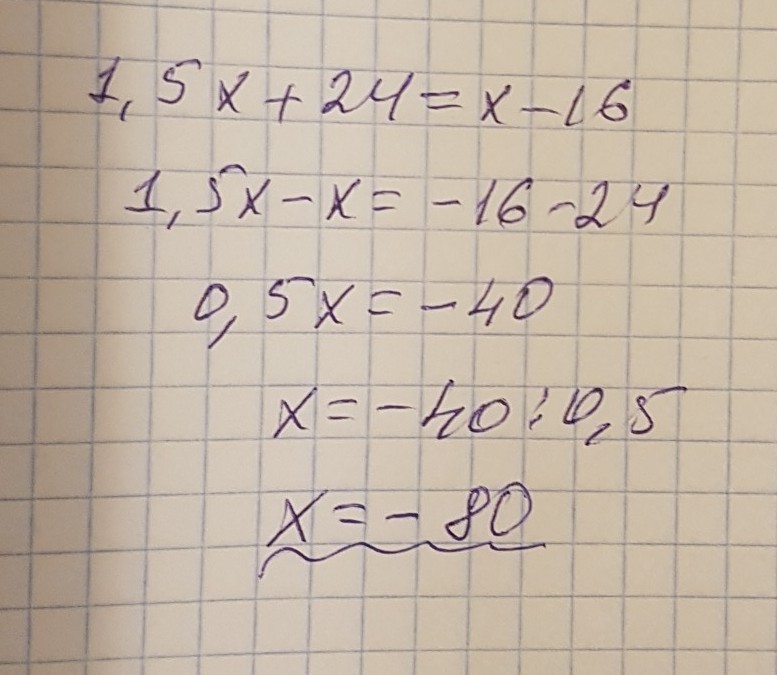 1,5x+24=x-16
1,5x-x=-16-24
0,5x=-40
x=-40:0,5
x=-80